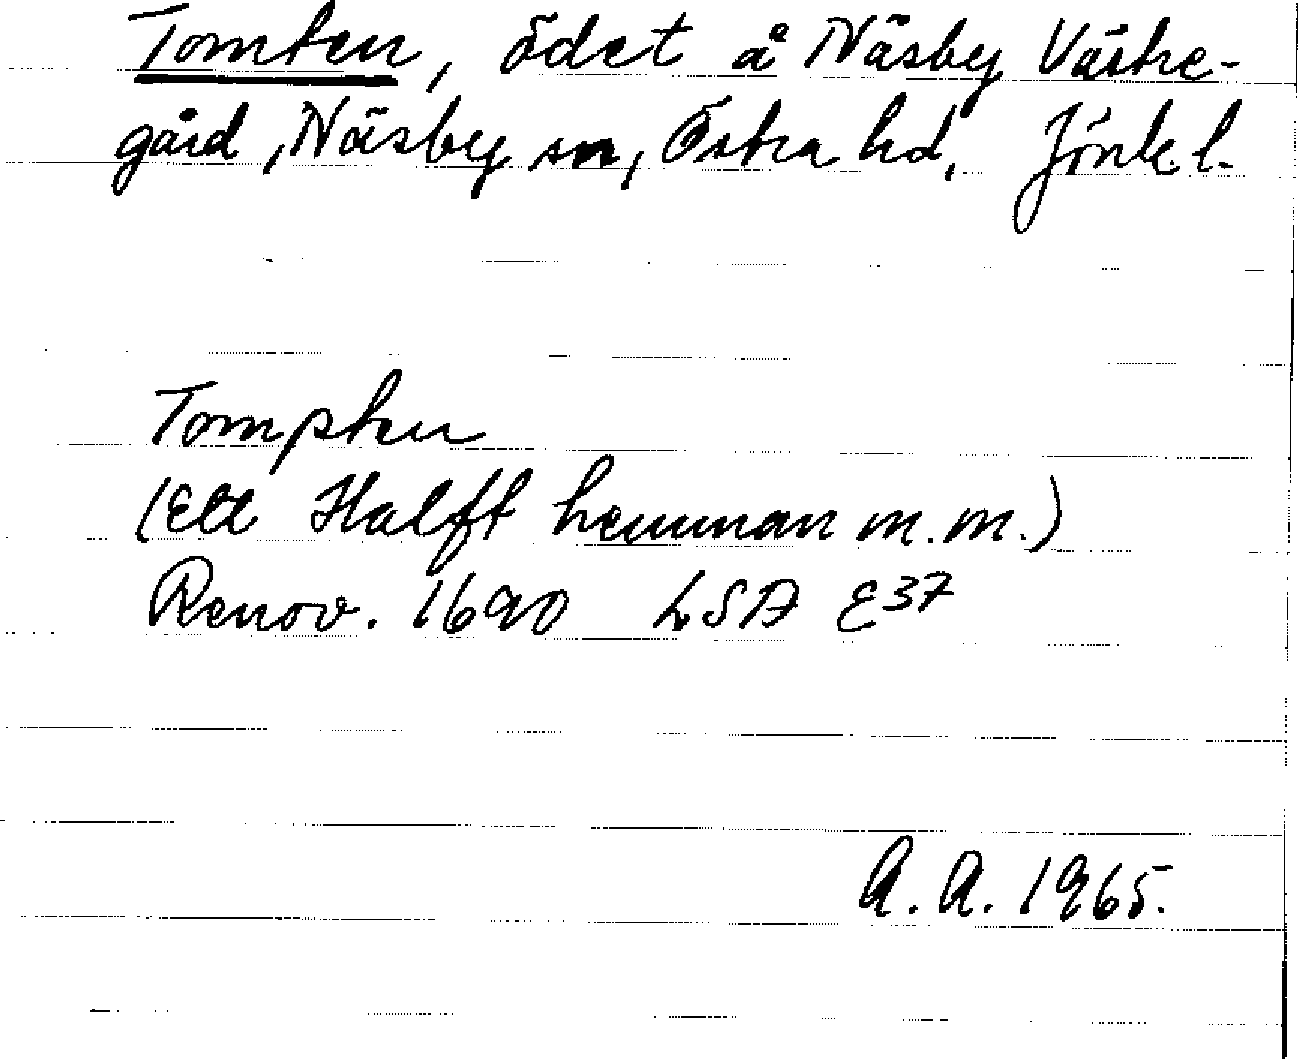 Tomten, ödet å Näsby Västre-
gård, Näsby sn, Östra hd, Jönk l.
Tompten
(Ett Halft hemman m.m.)
Renov. 1690 LSA E37
A.A. 1965.